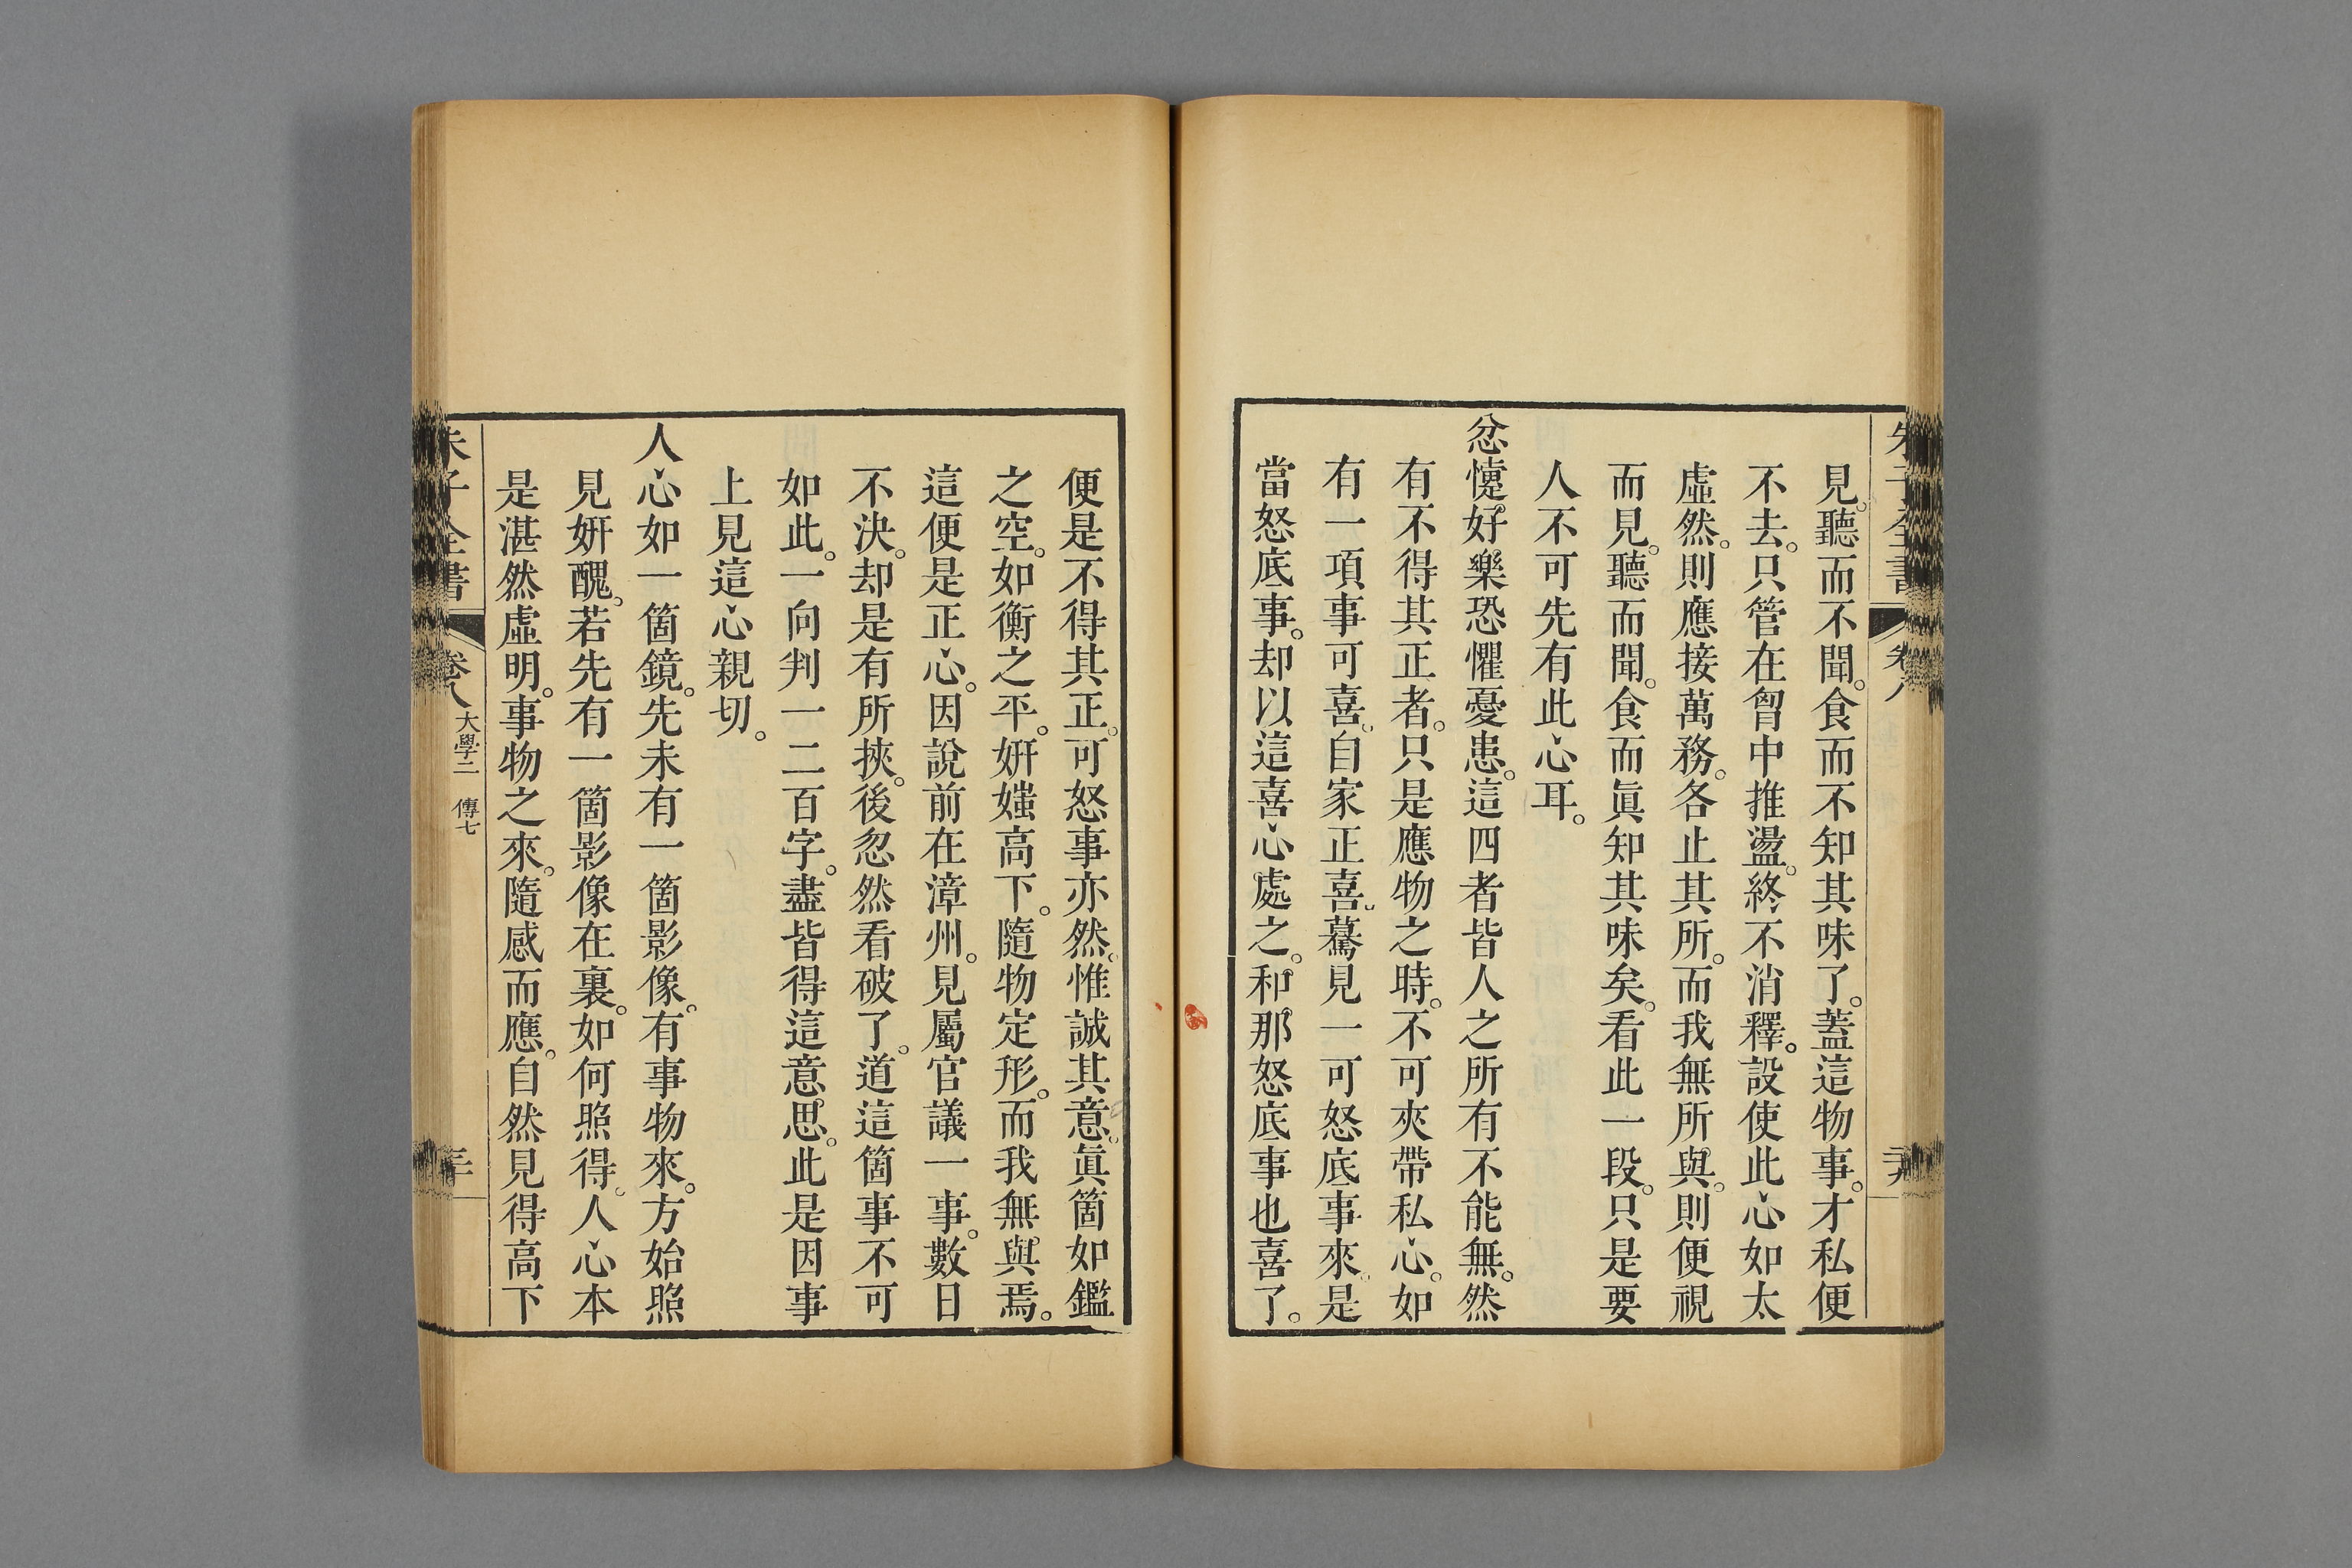 朱子全書 卷八 三十九
見。聽而不聞。食而不知其味了。蓋這物事。才私便
不去。只管在胷中推盪。終不消釋。設使此心如太
虛然。則應接萬務。各止其所。而我無所與。則便視
而見。聽而聞。食而眞知其味矣。看此一段。只是要
人不可先有此心耳。
忿懥。好樂恐懼憂患。這四者皆人之所有不能無。然
有不得其正者。只是應物之時。不可夾帶私心。如
有一項事可喜。自家正喜。驀見一可怒底事來。是
當怒底事。却以這喜心處之。和那怒底事也喜了。
便是不得其正。可怒事亦然。惟誠其意。眞箇如鑑
之空。如衡之平。妍媸高下。隨物定形。而我無與焉。
這便是正心。因說前在漳州。見屬官議一事。數日
不決。却是有所挾。後忽然看破了。道這箇事不可
如此。一向判一二百字。盡皆得這意思。此是因事
上見這心親切。
人心如一箇鏡。先未有一箇影像。有事物來。方始照
見妍醜。若先有一箇影像在裏。如何照得。人心本
是湛然虛明。事物之來。隨感而應。自然見得高下
朱子全書 卷八 大學二 傳七